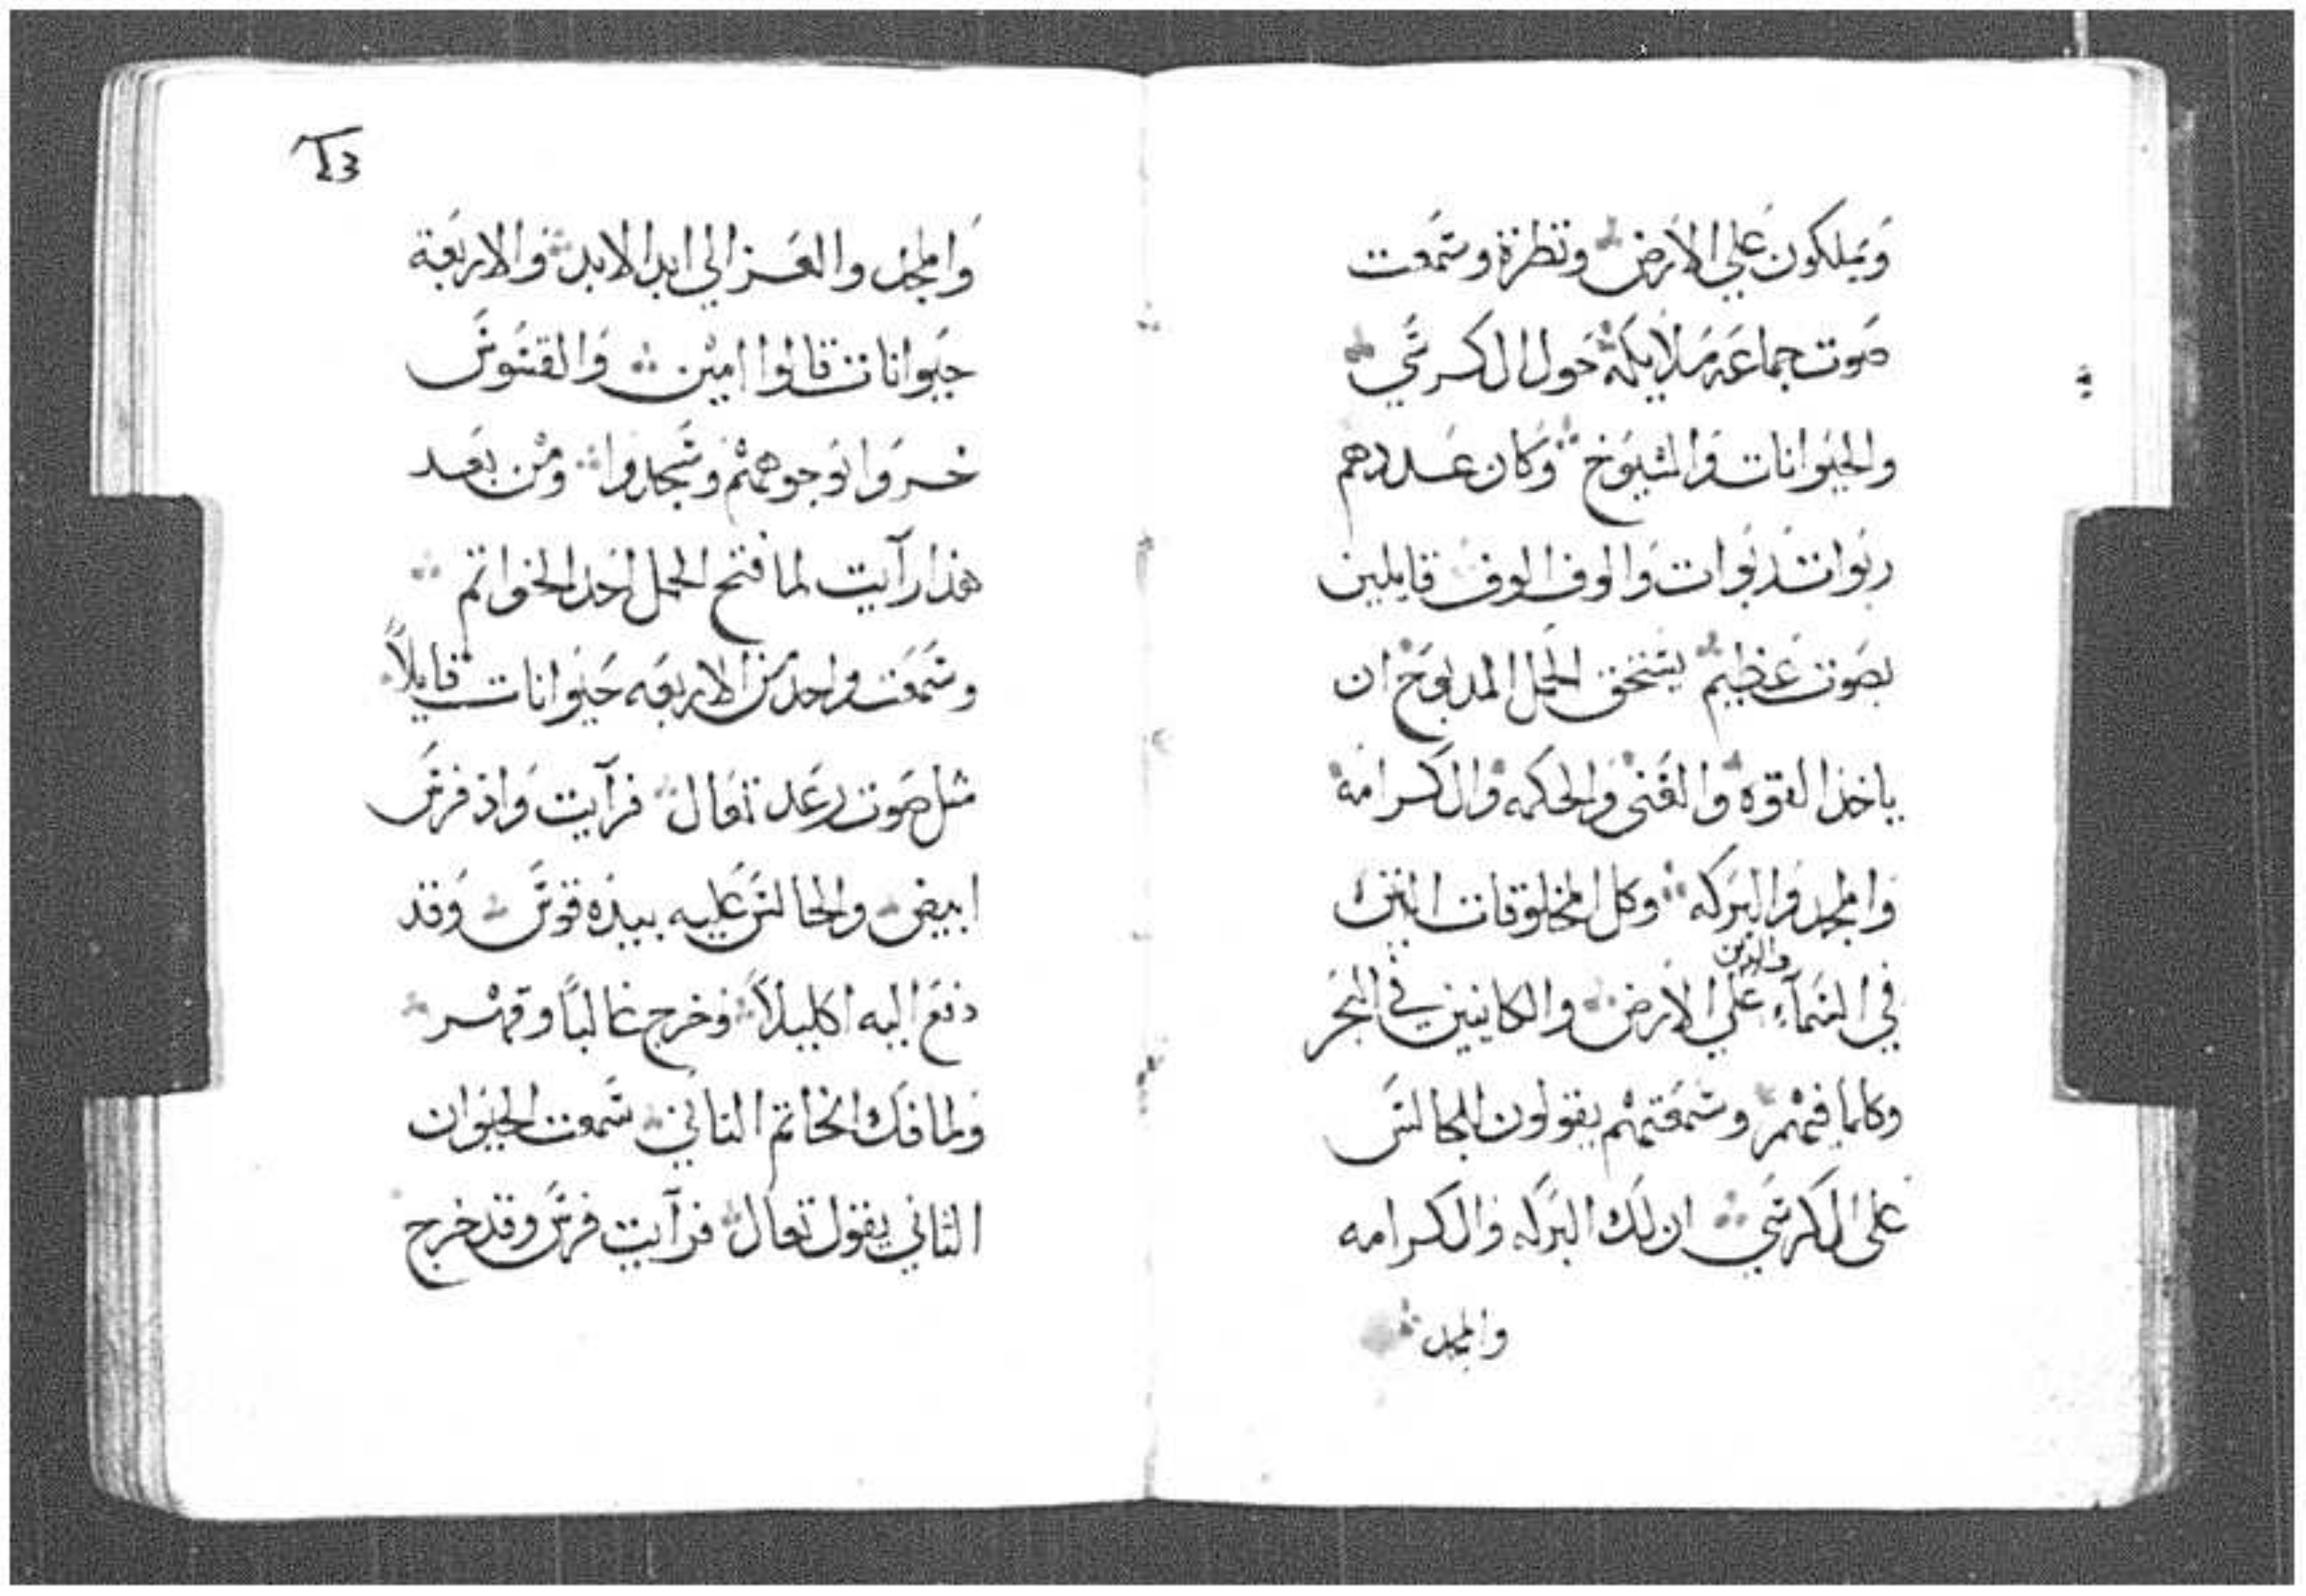 ويملكون علي الارض ونظرة وسمعت
صوت جماعه ملايكه حول الكرسي
والحيوانات والشيوخ وكان عددهم
ربوات ربوات والوف الوف قايلين
بصوت عظيم يستحق الحمل المدبوح ان
ياخذ القوه والغنى والحكمه والكرامه
والمجد والبركه وكل المخلوقات
في السمآء والذين علي الارض والكاينين في البحر
وكلما فيهم وسمعتهم يقولون للجالس
على الكرسي ان لك البركه والكرامه
والمجد
والمجد والعز الي ابد الابد والاربعة
حيوانات قالوا امين والقسوس
خروا لوجوههم وسجدوا ومن بعد
هذا رآيت لما فتح الحمل احد الخواتم
وسمعت واحد من الاربعه حيوانات قايلاً
مثل صوت رعد تعال فرآيت واذ فرس
ابيض والجالس عليه بيده قوس وقد
دفع اليه اكليلاً وخرج غالباً وقهر
ولما فك الخاتم الثاني سمعت الحيوان
الثاني يقول تعال فرآيت فرس وقد خرج